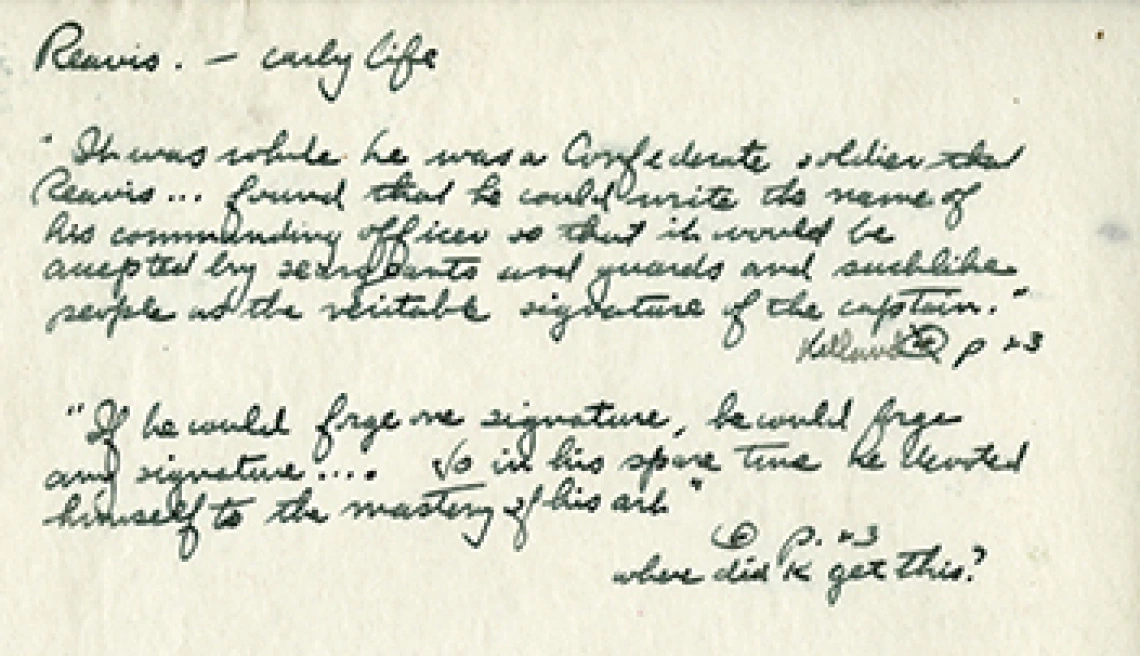 Reavis. — early life
"It was while he was a Confederate soldier that
Reavis... found that he could write the name of
his commanding officer so that it would be
accepted by sergeants and guards and suchlike
people as the veritable signature of the captain."
p 23
"If he could forge one signature, he could forge
any signature.... So in his spare time he devoted
himself to the mastery of his art"
p. 23
where did K get this?